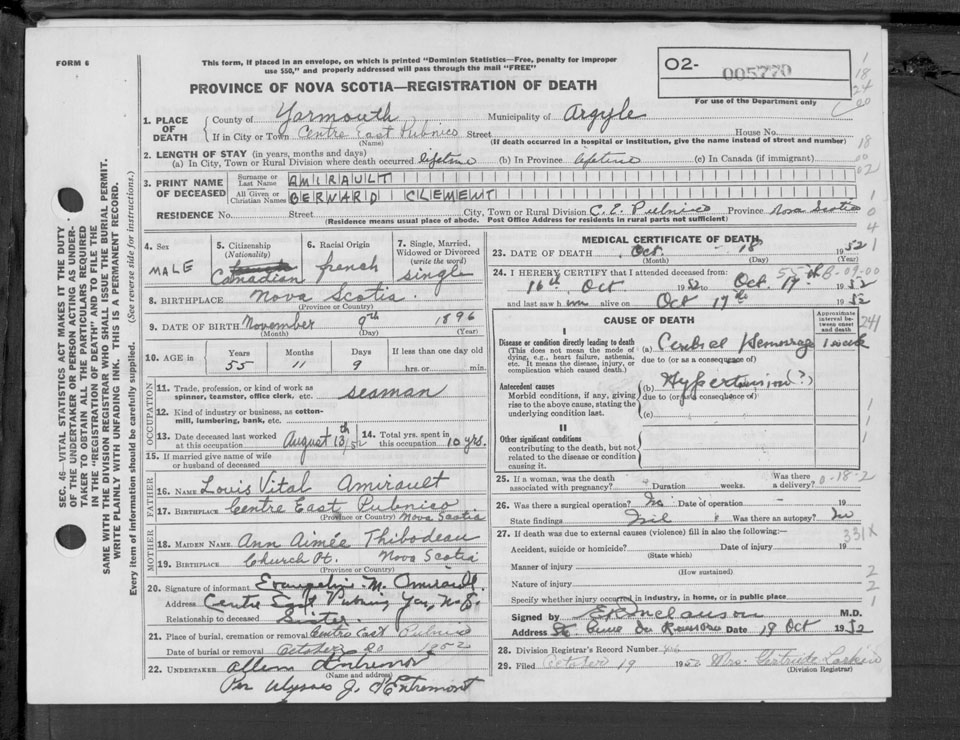 FORM 6
This form, if placed in an envelope, on which is printed "Dominion Statistics—Free, penalty for improper
use $50," and properly addressed will pass through the mail "FREE"
PROVINCE OF NOVA SCOTIA—REGISTRATION OF DEATH
O2- 005770
For use of the Department only
1. PLACE OF DEATH
County of Yarmouth Municipality of Argyle
If in City or Town Centre East Pubnico Street House No.
(Name) (If death occurred in a hospital or institution, give the name instead of street and number)
2. LENGTH OF STAY (in years, months and days)
(a) In City, Town or Rural Division where death occurred lifetime (b) In Province lifetime (c) In Canada (if immigrant)
3. PRINT NAME OF DECEASED
Surname or Last Name AMIRAULT
All Given or Christian Names BERNARD CLEMENT
RESIDENCE No. Street City, Town or Rural Division C. E. Pubnico Province Nova Scotia
(Residence means usual place of abode. Post Office Address for residents in rural parts not sufficient)
4. Sex MALE
5. Citizenship (Nationality) Canadian
6. Racial Origin french
7. Single, Married, Widowed or Divorced (write the word) single
8. BIRTHPLACE Nova Scotia.
(Province or Country)
9. DATE OF BIRTH November 9th 1896
(Month) (Day) (Year)
10. AGE in Years Months Days If less than one day old
55 11 9 hrs. or min.
OCCUPATION
11. Trade, profession, or kind of work as spinner, teamster, office clerk, etc. seaman
12. Kind of industry or business, as cotton-mill, lumbering, bank, etc.
13. Date deceased last worked at this occupation August 13th/52
14. Total yrs. spent in this occupation 10 yrs.
15. If married give name of wife or husband of deceased
FATHER
16. NAME Louis Vital Amirault
17. BIRTHPLACE Centre East Pubnico
(Province or Country) Nova Scotia
MOTHER
18. MAIDEN NAME Ann Aimée Thibodeau
19. BIRTHPLACE Church Pt. Nova Scotia
(Province or Country)
20. Signature of informant Evangeline M. Amirault
Address Centre East Pubnico Yar. N.S.
Relationship to deceased Sister
21. Place of burial, cremation or removal Centre East Pubnico
Date of burial or removal October 20 1952
22. UNDERTAKER Allen d'Entremont
(Name and address)
Per Ulysses J. d'Entremont
MEDICAL CERTIFICATE OF DEATH
23. DATE OF DEATH Oct. - 18 1952
(Month) (Day) (Year)
24. I HEREBY CERTIFY that I attended deceased from:
16th Oct 1952 to Oct. 17th 1952
and last saw him alive on Oct 17th 1952
CAUSE OF DEATH
Approximate interval between onset and death
I
Disease or condition directly leading to death
(This does not mean the mode of dying, e.g., heart failure, asthenia, etc. It means the disease, injury, or complication which caused death.)
(a) Cerebral Hemorrage 1 week
due to (or as a consequence of)
Antecedent causes
Morbid conditions, if any, giving rise to the above cause, stating the underlying condition last.
(b) Hypertension (?)
due to (or as a consequence of)
(c)
II
Other significant conditions
contributing to the death, but not related to the disease or condition causing it.
25. If a woman, was the death associated with pregnancy? Duration weeks. Was there a delivery?
26. Was there a surgical operation? No Date of operation - 19
State findings Nil Was there an autopsy? No
27. If death was due to external causes (violence) fill in also the following:—
Accident, suicide or homicide? Date of injury 19
(State which)
Manner of injury
(How sustained)
Nature of injury
Specify whether injury occurred in industry, in home, or in public place
Signed by M.D.
Address Ste. Anne du Ruisseau Date 19 Oct 1952
28. Division Registrar's Record Number
29. Filed October 19 195 Mrs. Gertrude
(Division Registrar)
SEC. 46—VITAL STATISTICS ACT MAKES IT THE DUTY
OF THE UNDERTAKER OR PERSON ACTING AS UNDER-
TAKER TO OBTAIN ALL THE PARTICULARS REQUIRED
IN THE "REGISTRATION OF DEATH" AND TO FILE THE
SAME WITH THE DIVISION REGISTRAR WHO SHALL ISSUE THE BURIAL PERMIT.
WRITE PLAINLY WITH UNFADING INK. THIS IS A PERMANENT RECORD.
Every item of information should be carefully supplied. (See reverse side for instructions.)